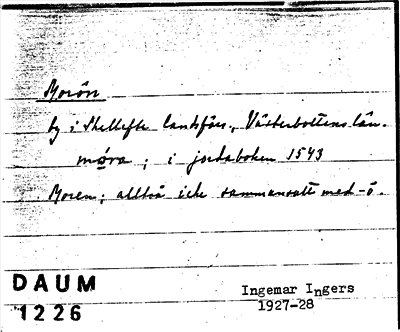 Morön
by i Skellefte landsförs., Västerbottens län.
mǫra ; i jordaboken 1543
Moren; alltså icke sammansatt med -ö.
DAUM
1226
Ingemar Ingers
1927-28